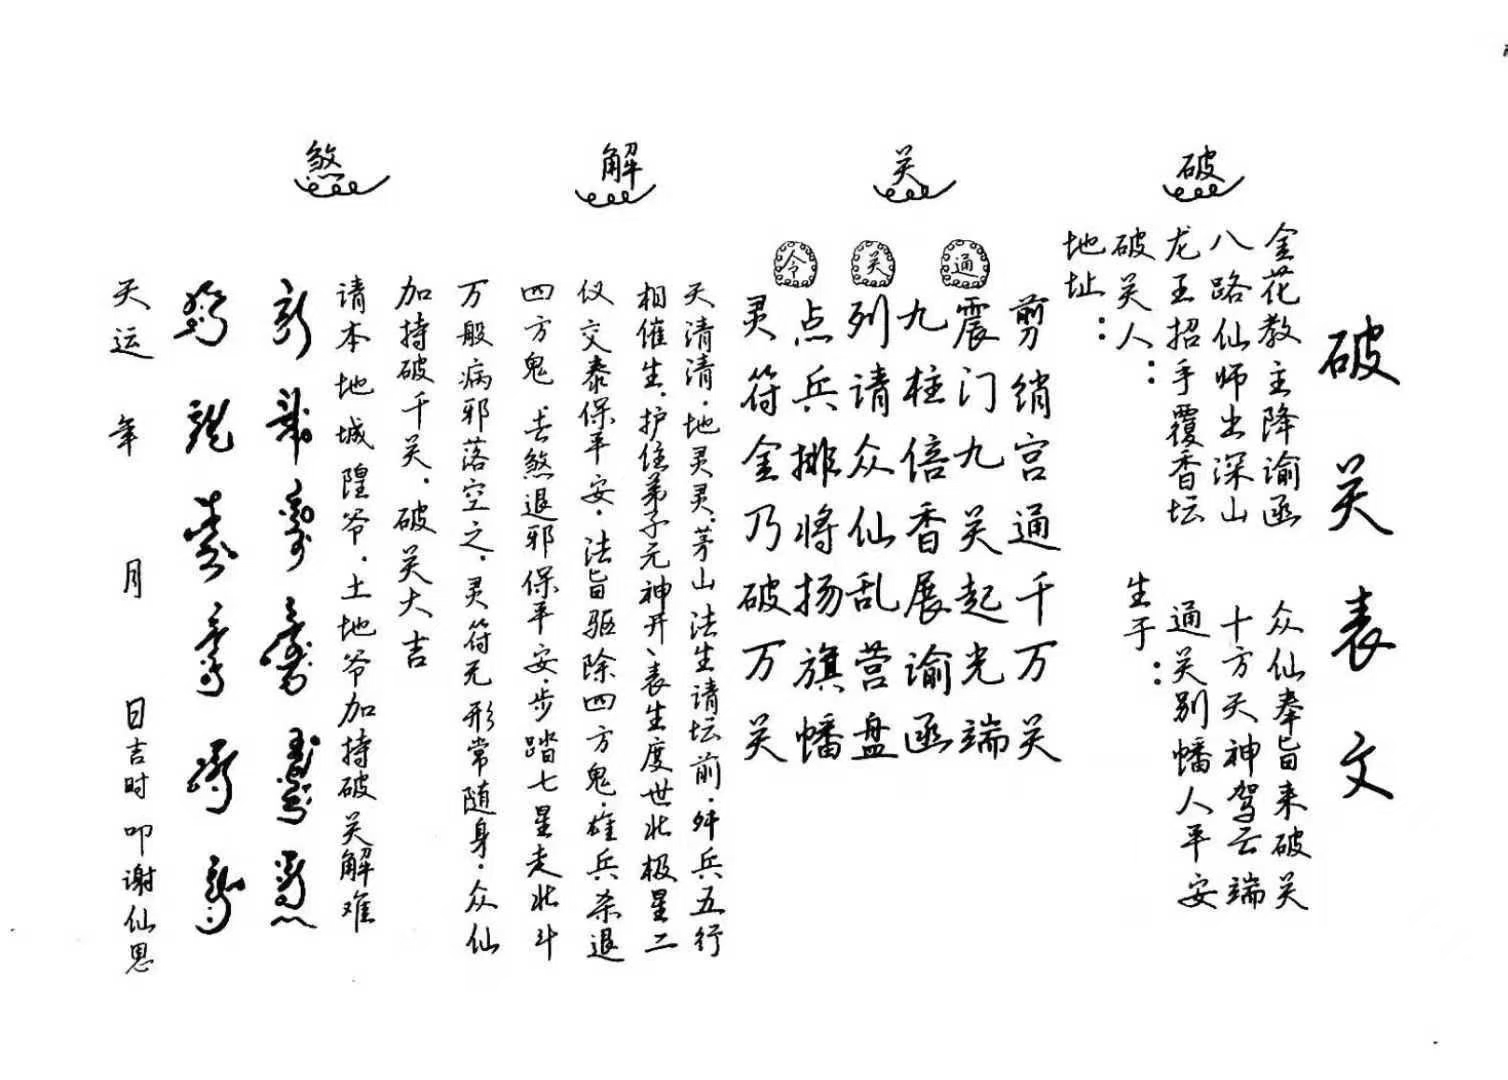 破关解煞
破关表文
金花教主降谕函 众仙奉旨来破关
八路仙师出深山 十方天神驾云端
龙王招手覆香坛 通关别幡人平安
破关人： 生于：
地址：
通关令
剪绡宫通千万关
震门九关起光端
九柱倍香展谕函
列请众仙乱营盘
点兵排将扬旗幡
灵符金乃破万关
天清清.地灵灵.茅山法生请坛前.歼兵五行
相催生.护住弟子元神开、表生度世北极星二
仪交泰保平安.法旨驱除四方鬼.雄兵杀退
四方鬼 去煞退邪保平安.步踏七星走北斗
万般病邪落空之.灵符无形常随身.众仙
加持破千关.破关大吉
请本地城隍爷.土地爷加持破关解难
天运 年 月 日吉时 叩谢仙恩